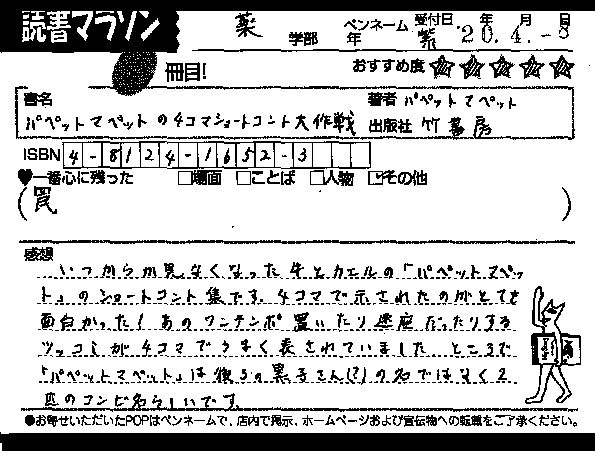 読書マラソン
薬 学部 年 ペンネーム 紫 受付日 20年 4月 -8日
冊目! おすすめ度 ☆☆☆☆☆
書名 パペットマペットの4コマショートコント大作戦
著者 パペットマペット
出版社 竹書房
ISBN 4-8124-1652-3
♥一番心に残った □場面 □ことば □人物 □その他
(罠)
感想
いつからか見なくなった牛とカエルの「パペットマペッ
ト」のショートコント集です。4コマで示されたのがとても
面白かった!あのワンテンポ置いたり速座だったりする
ツッコミが4コマでうまく表されていました。ところで
「パペットマペット」は後ろの黒子さん(?)の名ではなく2
匹のコンビ名らしいです。
●お寄せいただいたPOPはペンネームで、店内で掲示、ホームページおよび宣伝物への転載をご了承ください。